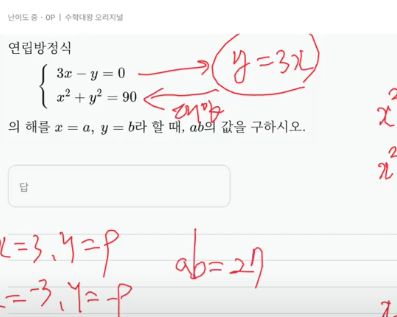 난이도 중 · 0P | 수학대왕 오리지널
연립방정식
3x − y = 0
y = 3x
x² + y² = 90
대입
x²
의 해를 x = a, y = b라 할 때, ab의 값을 구하시오.
x²
답
x = 3, y = 9
ab = 27
x = -3, y = -9
x